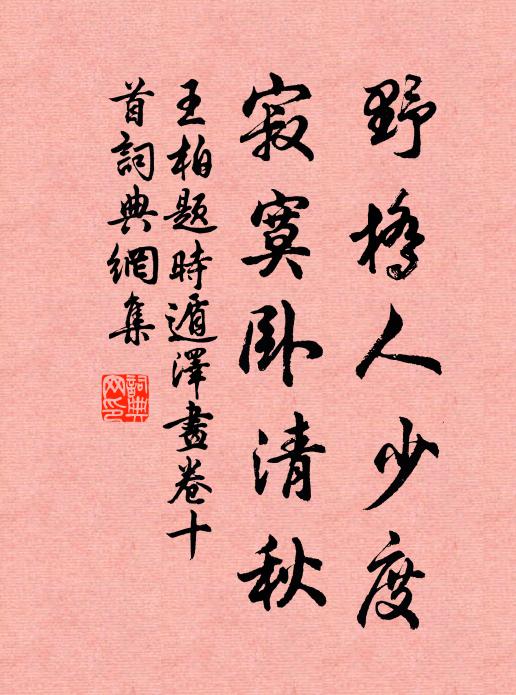 野橋人少度
寂寞卧清秋
王柏題時遁澤畫卷十
首詞典網集
詞典網印